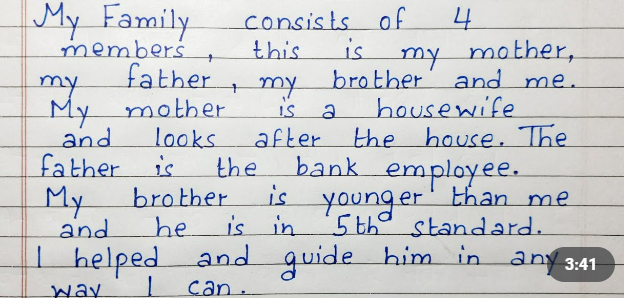 My Family consists of 4
members, this is my mother,
my father, my brother and me.
My mother is a housewife
and looks after the house. The
father is the bank employee.
My brother is younger than me
and he is in 5th standard.
I helped and guide him in any
way I can.
3:41